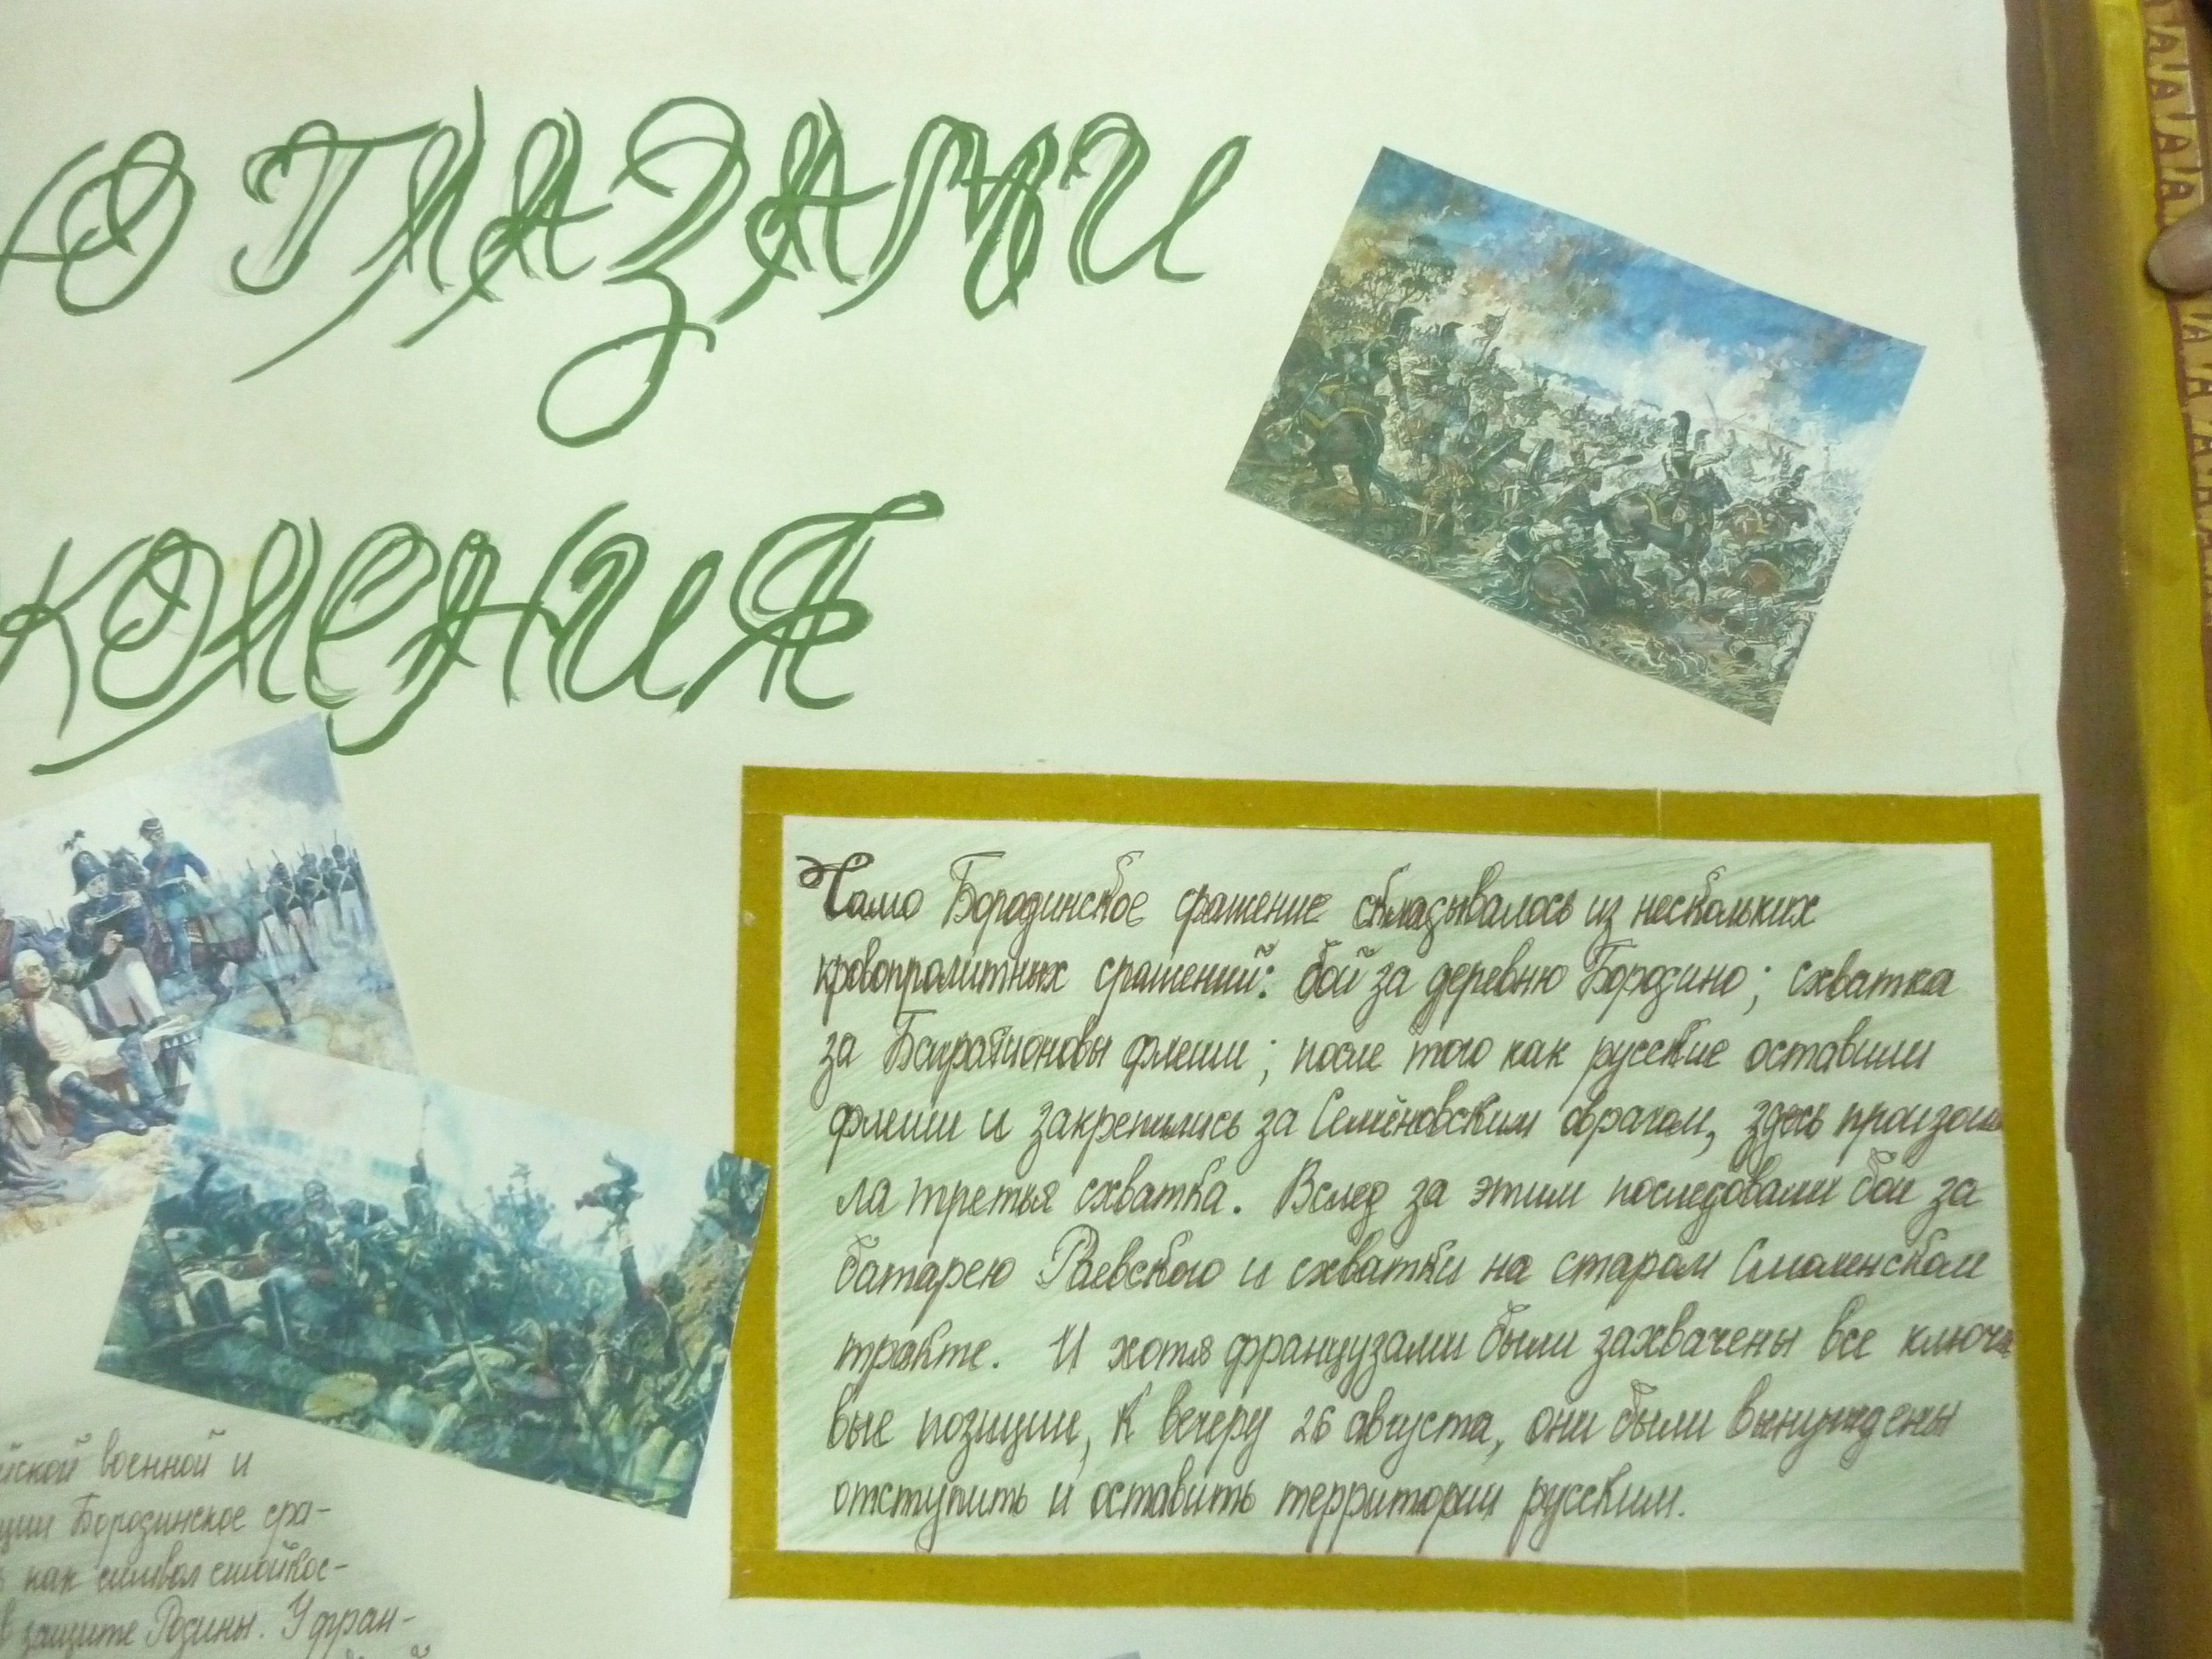 Ю ГЛАЗАМИ
КОЛЕНИЯ
Само Бородинское сражение складывалось из нескольких
кровопролитных сражений: бой за деревню Бородино; схватка
за Багратионовы флеши; после того как русские оставили
флеши и закрепились за Семёновским оврагом, здесь произош
ла третья схватка. Вслед за этим последовали бои за
батарею Раевского и схватки на старом Смоленском
тракте. И хотя французами были захвачены все ключе
вые позиции, к вечеру 26 августа, они были вынуждены
отступить и оставить территории русским.
йской военной и
ции Бородинское сра-
как символ стойкос-
в защите Родины. У фран-